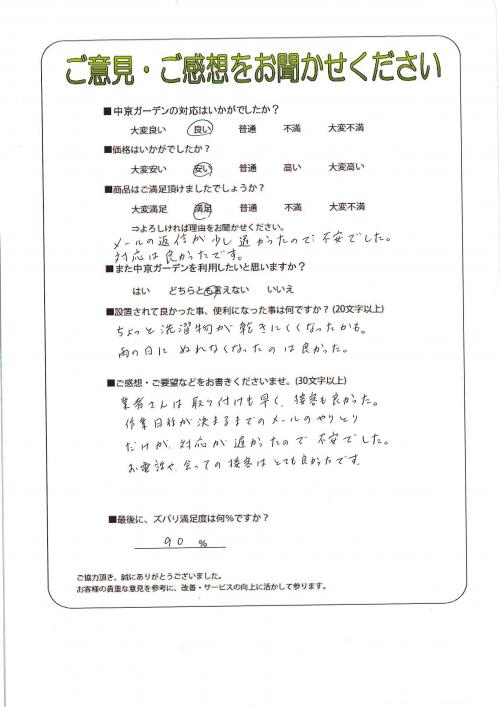 ご意見・ご感想をお聞かせください
■中京ガーデンの対応はいかがでしたか？
大変良い 良い 普通 不満 大変不満
■価格はいかがでしたか？
大変安い 安い 普通 高い 大変高い
■商品はご満足頂けましたでしょうか？
大変満足 満足 普通 不満 大変不満
⇒よろしければ理由をお聞かせください。
メールの返信が少し遅かったので不安でした。
対応は良かったです。
■また中京ガーデンを利用したいと思いますか？
はい どちらとも言えない いいえ
■設置されて良かった事、便利になった事は何ですか？(20文字以上)
ちょっと洗濯物が乾きにくくなったかも。
雨の日にぬれなくなったのは良かった。
■ご感想・ご要望などをお書きくださいませ。(30文字以上)
業者さんは取り付けも早く、接客も良かった。
作業日程が決まるまでのメールのやりとり
だけが、対応が遅かったので不安でした。
お電話や、会っての接客はとても良かったです。
■最後に、ズバリ満足度は何％ですか？
90 ％
ご協力頂き、誠にありがとうございました。
お客様の貴重な意見を参考に、改善・サービスの向上に活かして参ります。